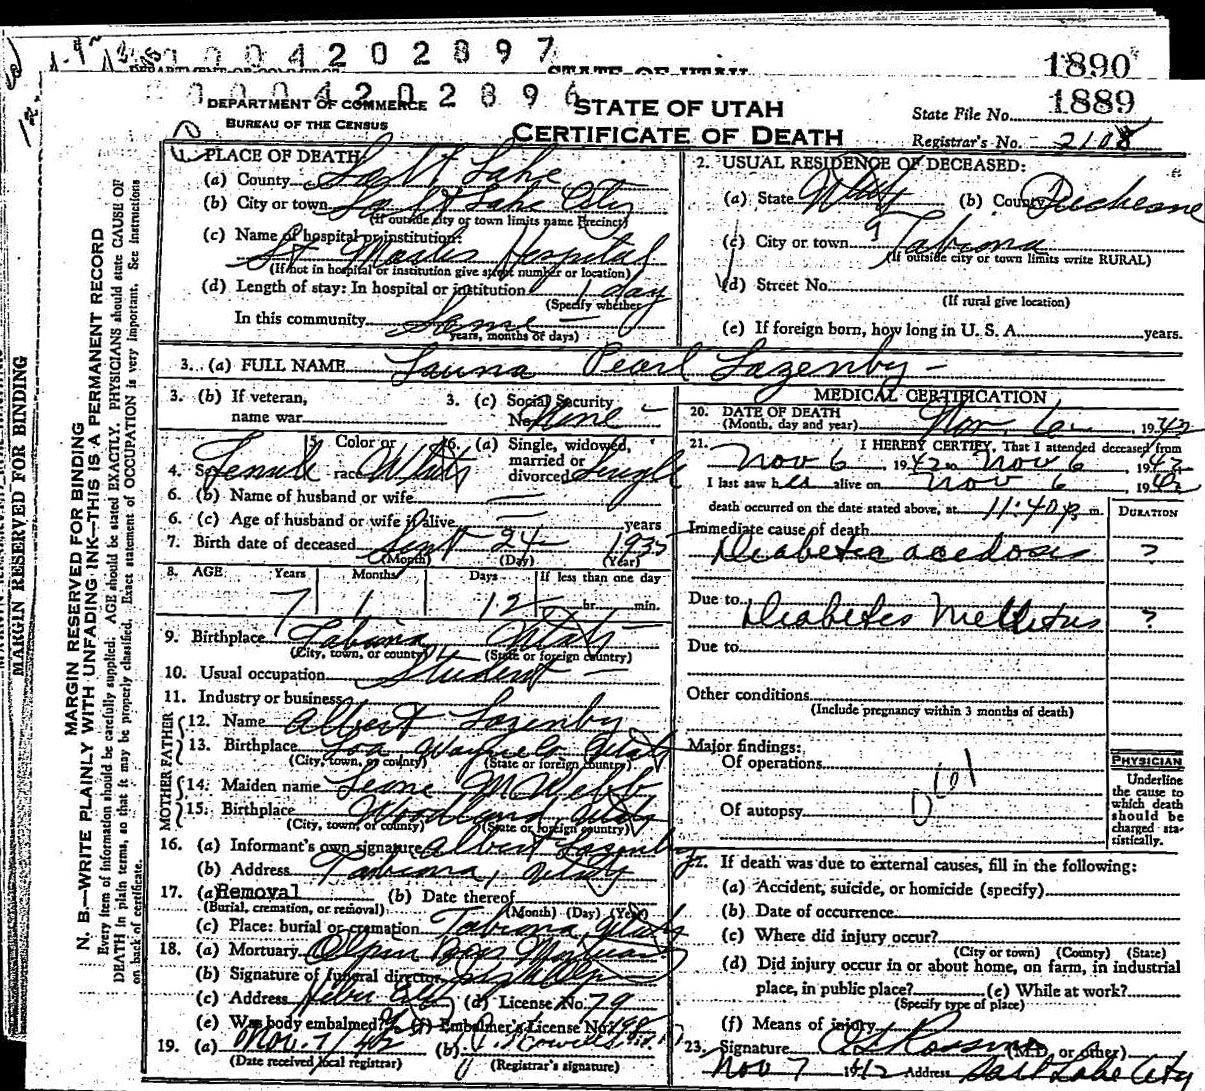 0004202897
STATE OF UTAH
1890
0004202896
DEPARTMENT OF COMMERCE
BUREAU OF THE CENSUS
STATE OF UTAH
CERTIFICATE OF DEATH
State File No. 1889
Registrar's No. 2108
MARGIN RESERVED FOR BINDING
MARGIN RESERVED FOR BINDING
N. B.—WRITE PLAINLY WITH UNFADING INK—THIS IS A PERMANENT RECORD
Every item of information should be carefully supplied. AGE should be stated EXACTLY. PHYSICIANS should state CAUSE OF
DEATH in plain terms, so that it may be properly classified. Exact statement of OCCUPATION is very important. See instructions
on back of certificate.
1. PLACE OF DEATH:
(a) County Salt Lake
(b) City or town Salt Lake City
(If outside city or town limits name Precinct)
(c) Name of hospital or institution:
St Marks Hospital
(If not in hospital or institution give street number or location)
(d) Length of stay: In hospital or institution 1 day
(Specify whether
In this community Same
years, months or days)
2. USUAL RESIDENCE OF DECEASED:
(a) State Utah (b) County Duchesne
(c) City or town Tabiona
(If outside city or town limits write RURAL)
(d) Street No.
(If rural give location)
(e) If foreign born, how long in U. S. A. years.
3. (a) FULL NAME Launa Pearl Lazenby
3. (b) If veteran,
name war
3. (c) Social Security
No. None
4. Sex Female 5. Color or race White 6. (a) Single, widowed, married or divorced Single
6. (b) Name of husband or wife
6. (c) Age of husband or wife if alive years
7. Birth date of deceased Sept 24 1935
(Month) (Day) (Year)
8. AGE Years Months Days If less than one day
7 1 12 hr. min.
9. Birthplace Tabiona Utah
(City, town, or county) (State or foreign country)
10. Usual occupation Student
11. Industry or business
FATHER
12. Name Albert Lazenby
13. Birthplace Loa Wayne Co Utah
(City, town, or county) (State or foreign country)
MOTHER
14. Maiden name Leone M Webb
15. Birthplace Woodland Utah
(City, town, or county) (State or foreign country)
16. (a) Informant's own signature Albert Lazenby
(b) Address Tabiona, Utah
17. (a) Removal (b) Date thereof
(Burial, cremation, or removal) (Month) (Day) (Year)
(c) Place: burial or cremation Tabiona, Utah
18. (a) Mortuary Olpin Bros Mortuary
(b) Signature of funeral director
(c) Address Heber City (d) License No. 79
(e) Was body embalmed? (f) Embalmer's License No.
19. (a) Nov. 7/42 (b)
(Date received local registrar) (Registrar's signature)
MEDICAL CERTIFICATION
20. DATE OF DEATH
(Month, day and year) Nov. 6 1942
21. I HEREBY CERTIFY, That I attended deceased from
Nov 6, 1942 to Nov 6, 1942
I last saw her alive on Nov 6, 1942
death occurred on the date stated above, at 11:40 p. m.
DURATION
Immediate cause of death
Diabetic acedosis ?
Due to Diabetes Mellitus ?
Due to
Other conditions
(Include pregnancy within 3 months of death)
Major findings:
Of operations
Of autopsy
PHYSICIAN
Underline
the cause to
which death
should be
charged sta-
tistically.
22. If death was due to external causes, fill in the following:
(a) Accident, suicide, or homicide (specify)
(b) Date of occurrence
(c) Where did injury occur?
(City or town) (County) (State)
(d) Did injury occur in or about home, on farm, in industrial
place, in public place? (e) While at work?
(Specify type of place)
(f) Means of injury
23. Signature (M.D. or other)
Nov 7 1942 Address Salt Lake City